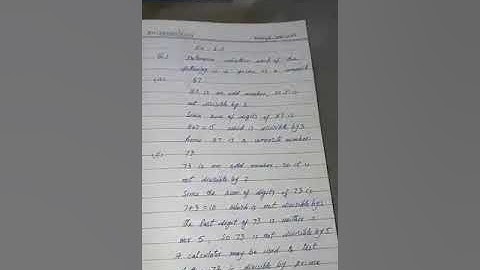 Ex 1.1
Q.1 Determine whether each of the
following is a prime is a composite
(a) 87
87 is an odd number, so it is
not divisible by 2
Since sum of digits of 87 is
8+7=15 which is divisible by 3
hence 87 is a composite number
73
73 is an odd number, so it is
not divisible by 2
Since the sum of digits of 73 is
7+3=10 which is not divisible by 3
The last digit of 73 is neither 0
nor 5, So 73 is not divisible by 5
A calculator may be used to test
73 is divisible by prime